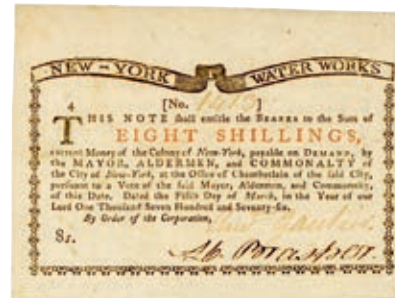 NEW-YORK WATER WORKS
4 [No. ]
THIS NOTE shall entitle the BEARER to the Sum of
EIGHT SHILLINGS,
current Money of the Colony of New-York, payable on DEMAND, by
the MAYOR, ALDERMEN, and COMMONALTY of
the City of New-York, at the Office of Chamberlain of the said City,
pursuant to a Vote of the said Mayor, Aldermen, and Commonalty,
of this Date. Dated the Fifth Day of March, in the Year of our
Lord One Thousand Seven Hundred and Seventy-six.
By Order of the Corporation,
8s.